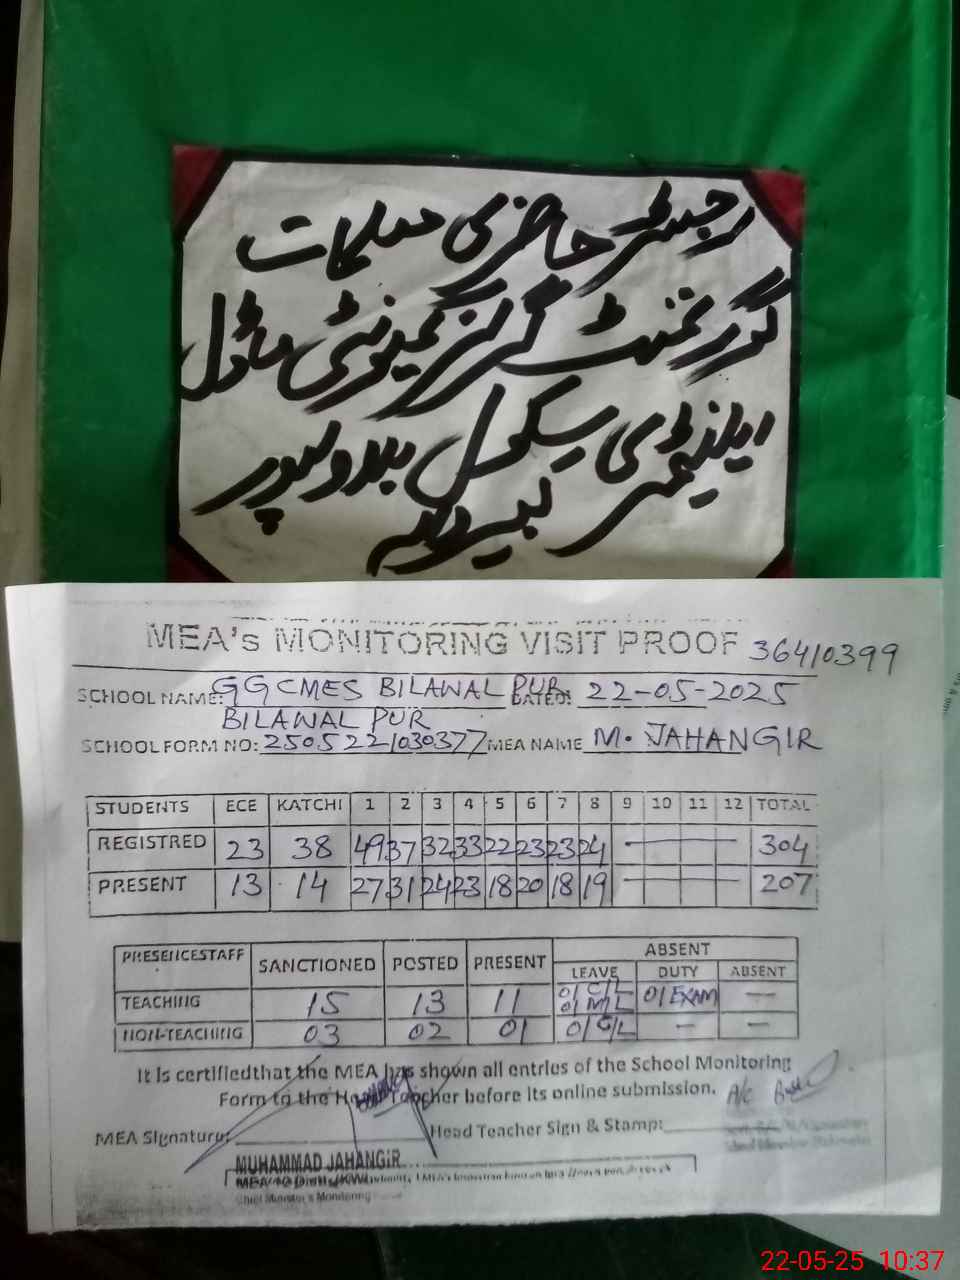 رجسٹر حاضری معلمات
گورنمنٹ گرلز کمیونٹی ماڈل
ایلیمنٹری سکول بلاولپور
کبیروالا
MEA's MONITORING VISIT PROOF 36410399
SCHOOL NAME: GGCMES BILAWAL PUR DATED: 22-05-2025
BILAWAL PUR
SCHOOL FORM NO: 2505221030377 MEA NAME M. JAHANGIR
STUDENTS ECE KATCHI 1 2 3 4 5 6 7 8 9 10 11 12 TOTAL
REGISTRED 23 38 49 37 32 33 22 23 23 24 — 304
PRESENT 13 14 27 31 24 23 18 20 18 19 — 207
PRESENCESTAFF SANCTIONED POSTED PRESENT ABSENT
LEAVE DUTY ABSENT
TEACHING 15 13 11 01 C/L 01 M/L 01 EXAM —
NON-TEACHING 03 02 01 01 C/L — —
It is certifiedthat the MEA has shown all entries of the School Monitoring
Form to the Head Teacher before its online submission.
MEA Signature: Head Teacher Sign & Stamp:
MUHAMMAD JAHANGIR
Chief Minister's Monitoring
22-05-25 10:37